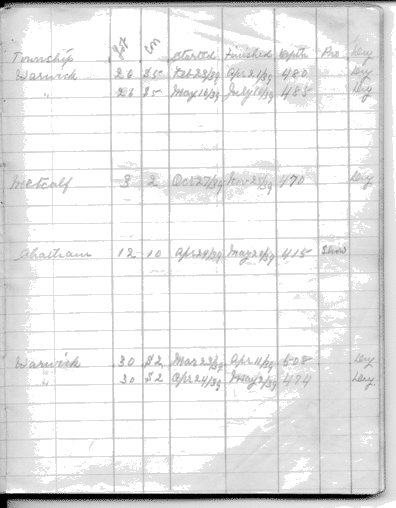 Township Lot Con Started Finished Depth Pro Dry
Warwick 26 Feb 23/39 Apr 21/39 480 Dry
" May 18/39 485 Dry
Metcalf 3 2 Oct 27/39 Nov 470 Dry
Chatham 12 10 Apr 24/39 May 29/39 415 Show
Warwick 30 Mar 23/39 Apr 11/39 508 Dry
" 30 Apr 24/39 May 474 Dry